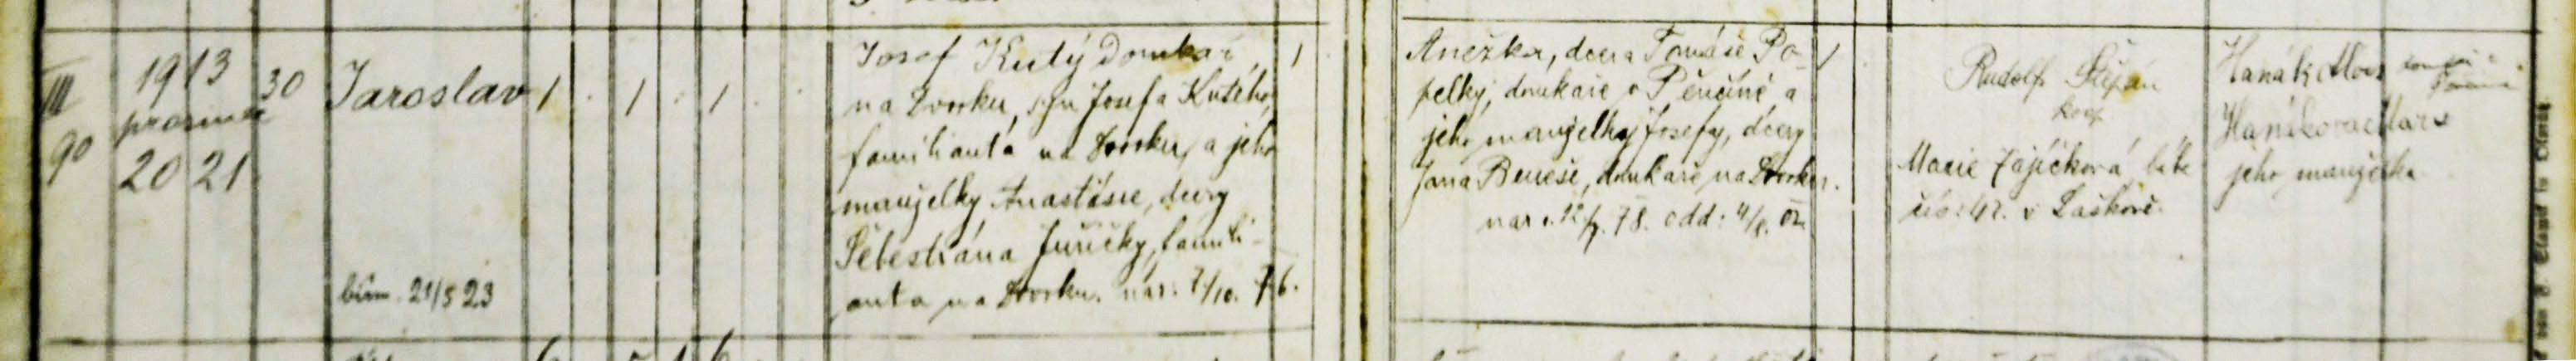 III
90
1913
prosince
20 21
30
Jaroslav 1 1 1
biřm. 21/5 23
Josef Kutý Domkař 1
na Dvorku, syn Josefa Kutého,
familianta na Dvorku, a jeho
manželky Anastásie, dcery
Šebestiána Juřičky, famili-
anta na Dvorku. nar. 7/10. 76.
Anežka, dcera Tomáše Po- 1
pelky, domkaře v Pěnčíně, a
jeho manželky Josefy, dcery
Jana Beneše, domkaře na Dvorku.
nar. 12/7. 78. odd: 4/8. 02
Rudolf Štěpán
koop.
Marie Zajíčková bába
čís: 42. v Laškově.
Hanák Alois
Hanáková Marie
jeho manželka